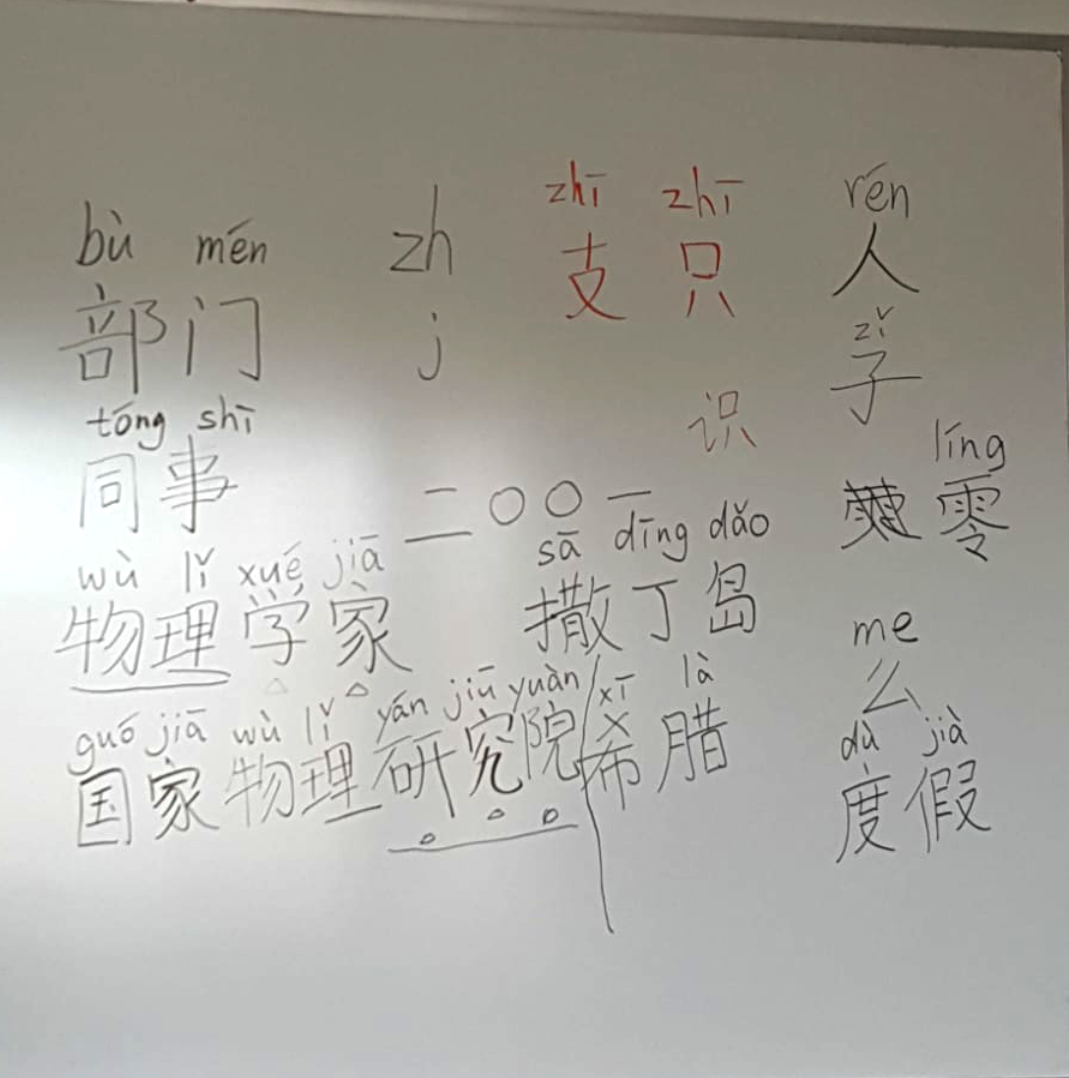 bù mén
部门
tóng shī
同事
wù lǐ xué jiā
物理学家
guó jiā wù lǐ yán jiū yuàn
国家物理研究院
zh
j
zhī zhī
支 只
识
二〇〇一
sā dīng dǎo
撒丁岛
xī là
希腊
rén
人
zǐ
子
líng
零
me
么
dù jià
度假